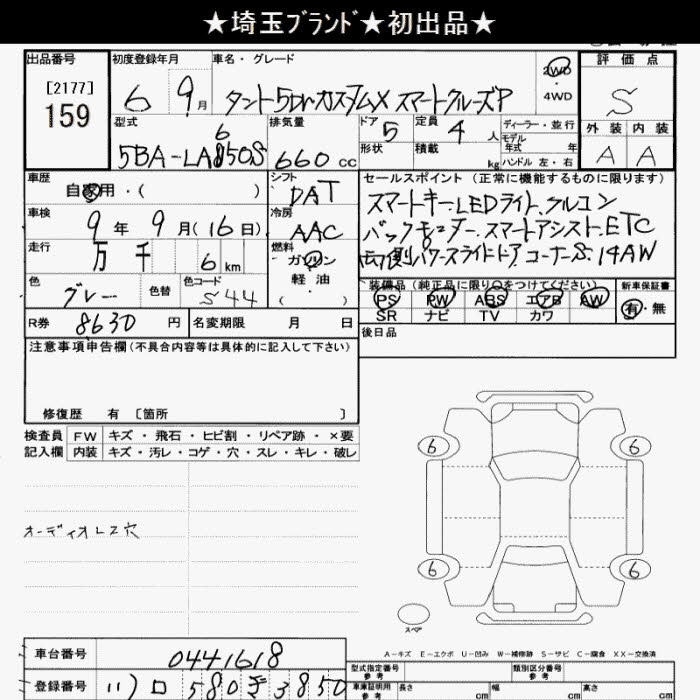 ★埼玉ブランド★初出品★
出品番号
[2177]
159
初度登録年月
6 9月
車名・グレード
タント5Drカスタム X スマートクルーズP
2WD
4WD
評価点
S
外装 内装
A A
型式
6
5BA-LA850S
排気量
660 cc
ドア
5
形状
定員
4 人
積載
kg
ディーラー・並行
モデル年式 年
ハンドル 左・右
車歴
自家用・( )
シフト
DAT
セールスポイント (正常に機能するものに限ります)
スマートキー.LEDライト.クルコン
バックモニター.スマートアシスト.ETC
両側パワースライドドア コーナーS.14AW
車検
9年 9月(16日)
冷房
AAC
走行
万 千 6 km
燃料
ガソリン
軽油
( )
色
グレー
色替
色コード
S44
装備品 (純正品に限り○をつけてください)
PS PW ABS エアB AW
SR ナビ TV カワ
新車保証書
有・無
R券 8630 円
名変期限 月 日
後日品
注意事項申告欄(不具合内容等は具体的に記入して下さい)
修復歴 有 [箇所 ]
検査員 FW キズ・飛石・ヒビ割・リペア跡・×要
記入欄 内装 キズ・汚レ・コゲ・穴・スレ・キレ・破レ
オーディオレス穴
6 6
6 6
スペア
A-キズ E-エクボ U-凹み W-補修跡 S-サビ C-腐食 XX-交換済
車台番号 0441618
登録番号 580 3850
型式指定番号
参考
類別区分番号
参考
車庫証明用
参考
長さ cm 幅 cm 高さ cm